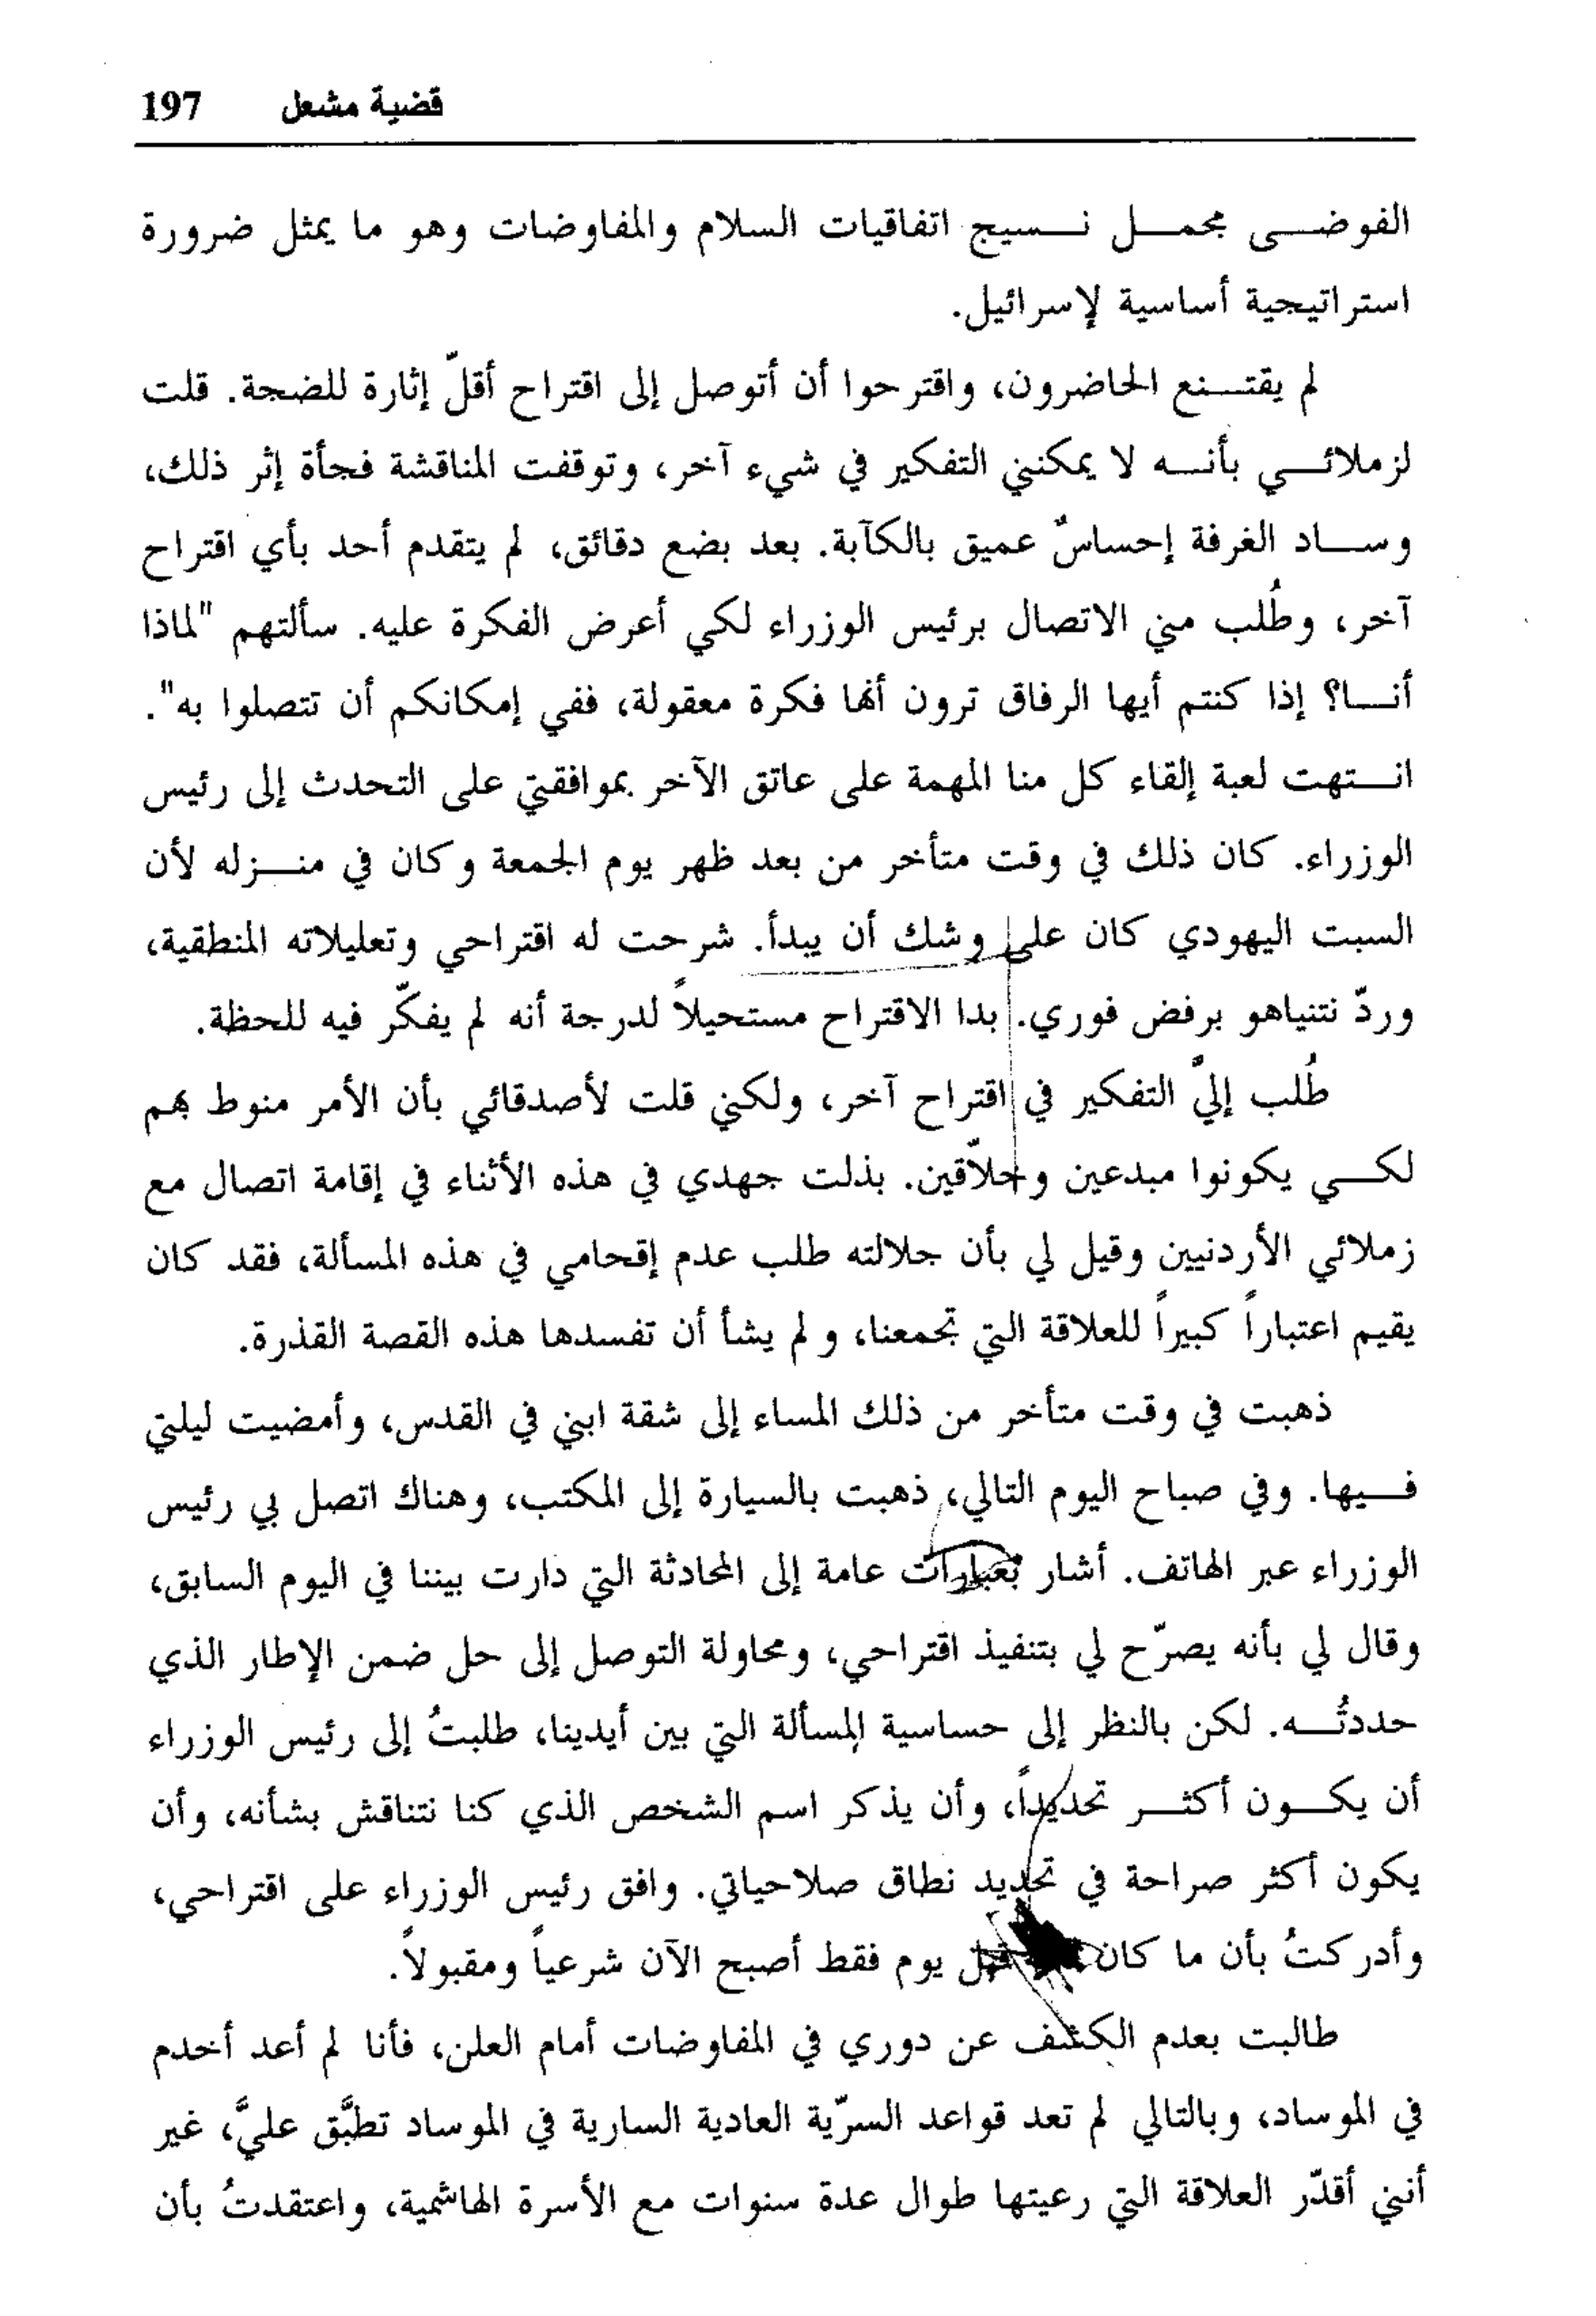 قضية مشعل 197
الفوضى مجمل نسيج اتفاقيات السلام والمفاوضات وهو ما يمثل ضرورة
استراتيجية أساسية لإسرائيل.
لم يقتنع الحاضرون، واقترحوا أن أتوصل إلى اقتراح أقلّ إثارة للضجة. قلت
لزملائي بأنه لا يمكنني التفكير في شيء آخر، وتوقفت المناقشة فجأة إثر ذلك،
وساد الغرفة إحساسٌ عميق بالكآبة. بعد بضع دقائق، لم يتقدم أحد بأي اقتراح
آخر، وطُلب مني الاتصال برئيس الوزراء لكي أعرض الفكرة عليه. سألتهم "لماذا
أنا؟ إذا كنتم أيها الرفاق ترون أنها فكرة معقولة، ففي إمكانكم أن تتصلوا به".
انتهت لعبة إلقاء كل منا المهمة على عاتق الآخر بموافقتي على التحدث إلى رئيس
الوزراء. كان ذلك في وقت متأخر من بعد ظهر يوم الجمعة وكان في منزله لأن
السبت اليهودي كان على وشك أن يبدأ. شرحت له اقتراحي وتعليلاته المنطقية،
وردّ نتنياهو برفض فوري. بدا الاقتراح مستحيلاً لدرجة أنه لم يفكّر فيه للحظة.
طُلب إليّ التفكير في اقتراح آخر، ولكني قلت لأصدقائي بأن الأمر منوط بهم
لكي يكونوا مبدعين وخلاّقين. بذلت جهدي في هذه الأثناء في إقامة اتصال مع
زملائي الأردنيين وقيل لي بأن جلالته طلب عدم إقحامي في هذه المسألة، فقد كان
يقيم اعتباراً كبيراً للعلاقة التي تجمعنا، ولم يشأ أن تفسدها هذه القصة القذرة.
ذهبت في وقت متأخر من ذلك المساء إلى شقة ابني في القدس، وأمضيت ليلتي
فيها. وفي صباح اليوم التالي، ذهبت بالسيارة إلى المكتب، وهناك اتصل بي رئيس
الوزراء عبر الهاتف. أشار بعبارات عامة إلى المحادثة التي دارت بيننا في اليوم السابق،
وقال لي بأنه يصرّح لي بتنفيذ اقتراحي، ومحاولة التوصل إلى حل ضمن الإطار الذي
حددتُه. لكن بالنظر إلى حساسية المسألة التي بين أيدينا، طلبتُ إلى رئيس الوزراء
أن يكون أكثر تحديداً، وأن يذكر اسم الشخص الذي كنا نتناقش بشأنه، وأن
يكون أكثر صراحة في تحديد نطاق صلاحياتي. وافق رئيس الوزراء على اقتراحي،
وأدركتُ بأن ما كان قبل يوم فقط أصبح الآن شرعياً ومقبولاً.
طالبت بعدم الكشف عن دوري في المفاوضات أمام العلن، فأنا لم أعد أخدم
في الموساد، وبالتالي لم تعد قواعد السرّية العادية السارية في الموساد تطبَّق عليَّ، غير
أنني أقدّر العلاقة التي رعيتها طوال عدة سنوات مع الأسرة الهاشمية، واعتقدتُ بأن